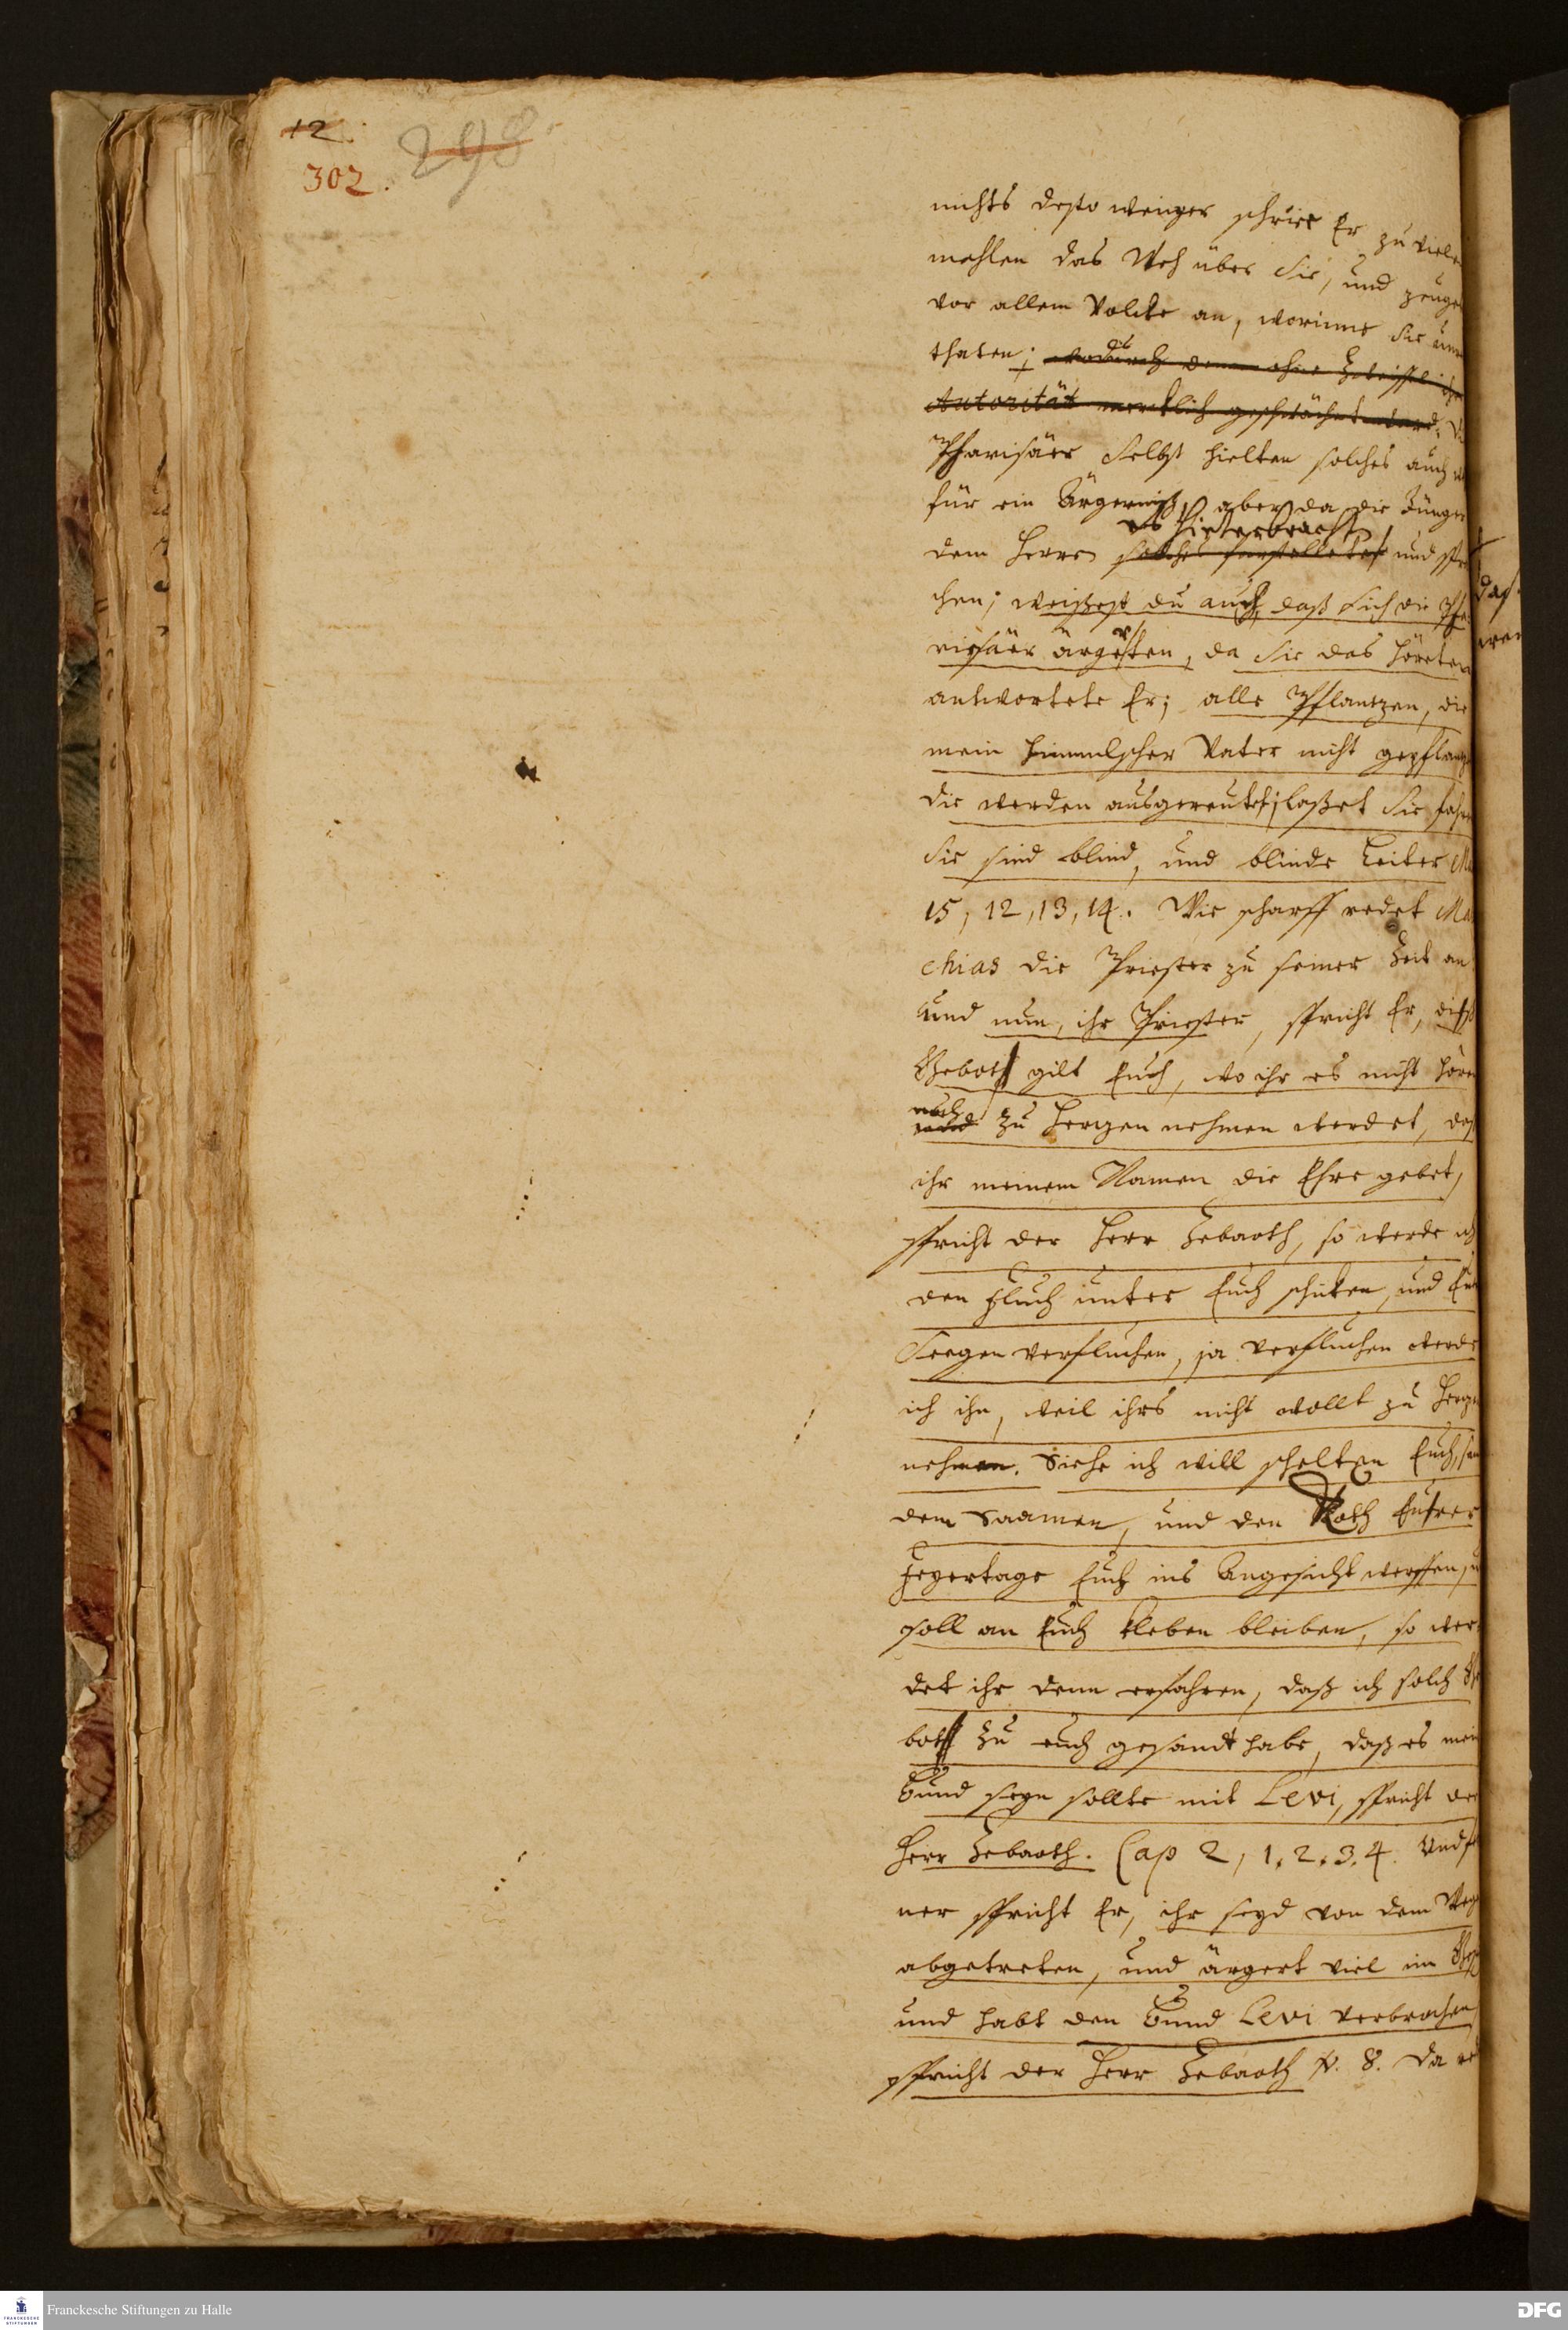 12.
298.
302.
nichts desto weniger schriee Er zu viele
mahlen das Weh über Sie, und zeuge
vor allem Volcke an, worinne Sie un
thaten; wodurch denn ohne Zweiffel ihre
Autorität mercklich geschwächet ward.
Pharisäer Selbst hielten solches auch
für ein Ärgerniß, aber da die Jünger
es hinterbracht
dem Herrn solches und spra
chen; weissest du auch, daß sich die Pha
risäer ärgerten, da Sie das höreten
antwortete Er; alle Pflantzen, die
mein himmlscher Vater nicht gepflantz
die werden ausgereutet; lasset Sie fahre
Sie sind blind, und blinde Leiter Ma
15, 12, 13, 14. Wie scharff redet Ma
chias die Priester zu seiner Zeit an
und nun, ihr Priester, spricht Er, diß
Geboth gilt Euch, wo ihr es nicht höre
noch
und zu Hertzen nehmen werdet, daß
ihr meinem Namen die Ehre gebet,
spricht der Herr Zebaoth, so werde ich
den Fluch unter Euch schicken, und Eur
Seegen verfluchen, ja verfluchen werde
ich ihn, weil ihrs nicht wollt zu Hertze
nehmen. Siehe ich will schelten Euch, sam
dem Saamen, und den Koth Eurer
Feyertage Euch ins Angesicht werffen, u
soll an Euch kleben bleiben, so wer
det ihr denn erfahren, daß ich solch Ge
both zu euch gesandt habe, daß es mein
Bund seyn sollte mit Levi, spricht der
Herr Zebaoth. Cap 2, 1. 2. 3. 4. Und f
ner spricht Er, ihr seyd von dem Weg
abgetreten, und ärgert viel im Ges
und habt den Bund Levi verbrochen
spricht der Herr Zebaoth v. 8. Da
Franckesche Stiftungen zu Halle
DFG